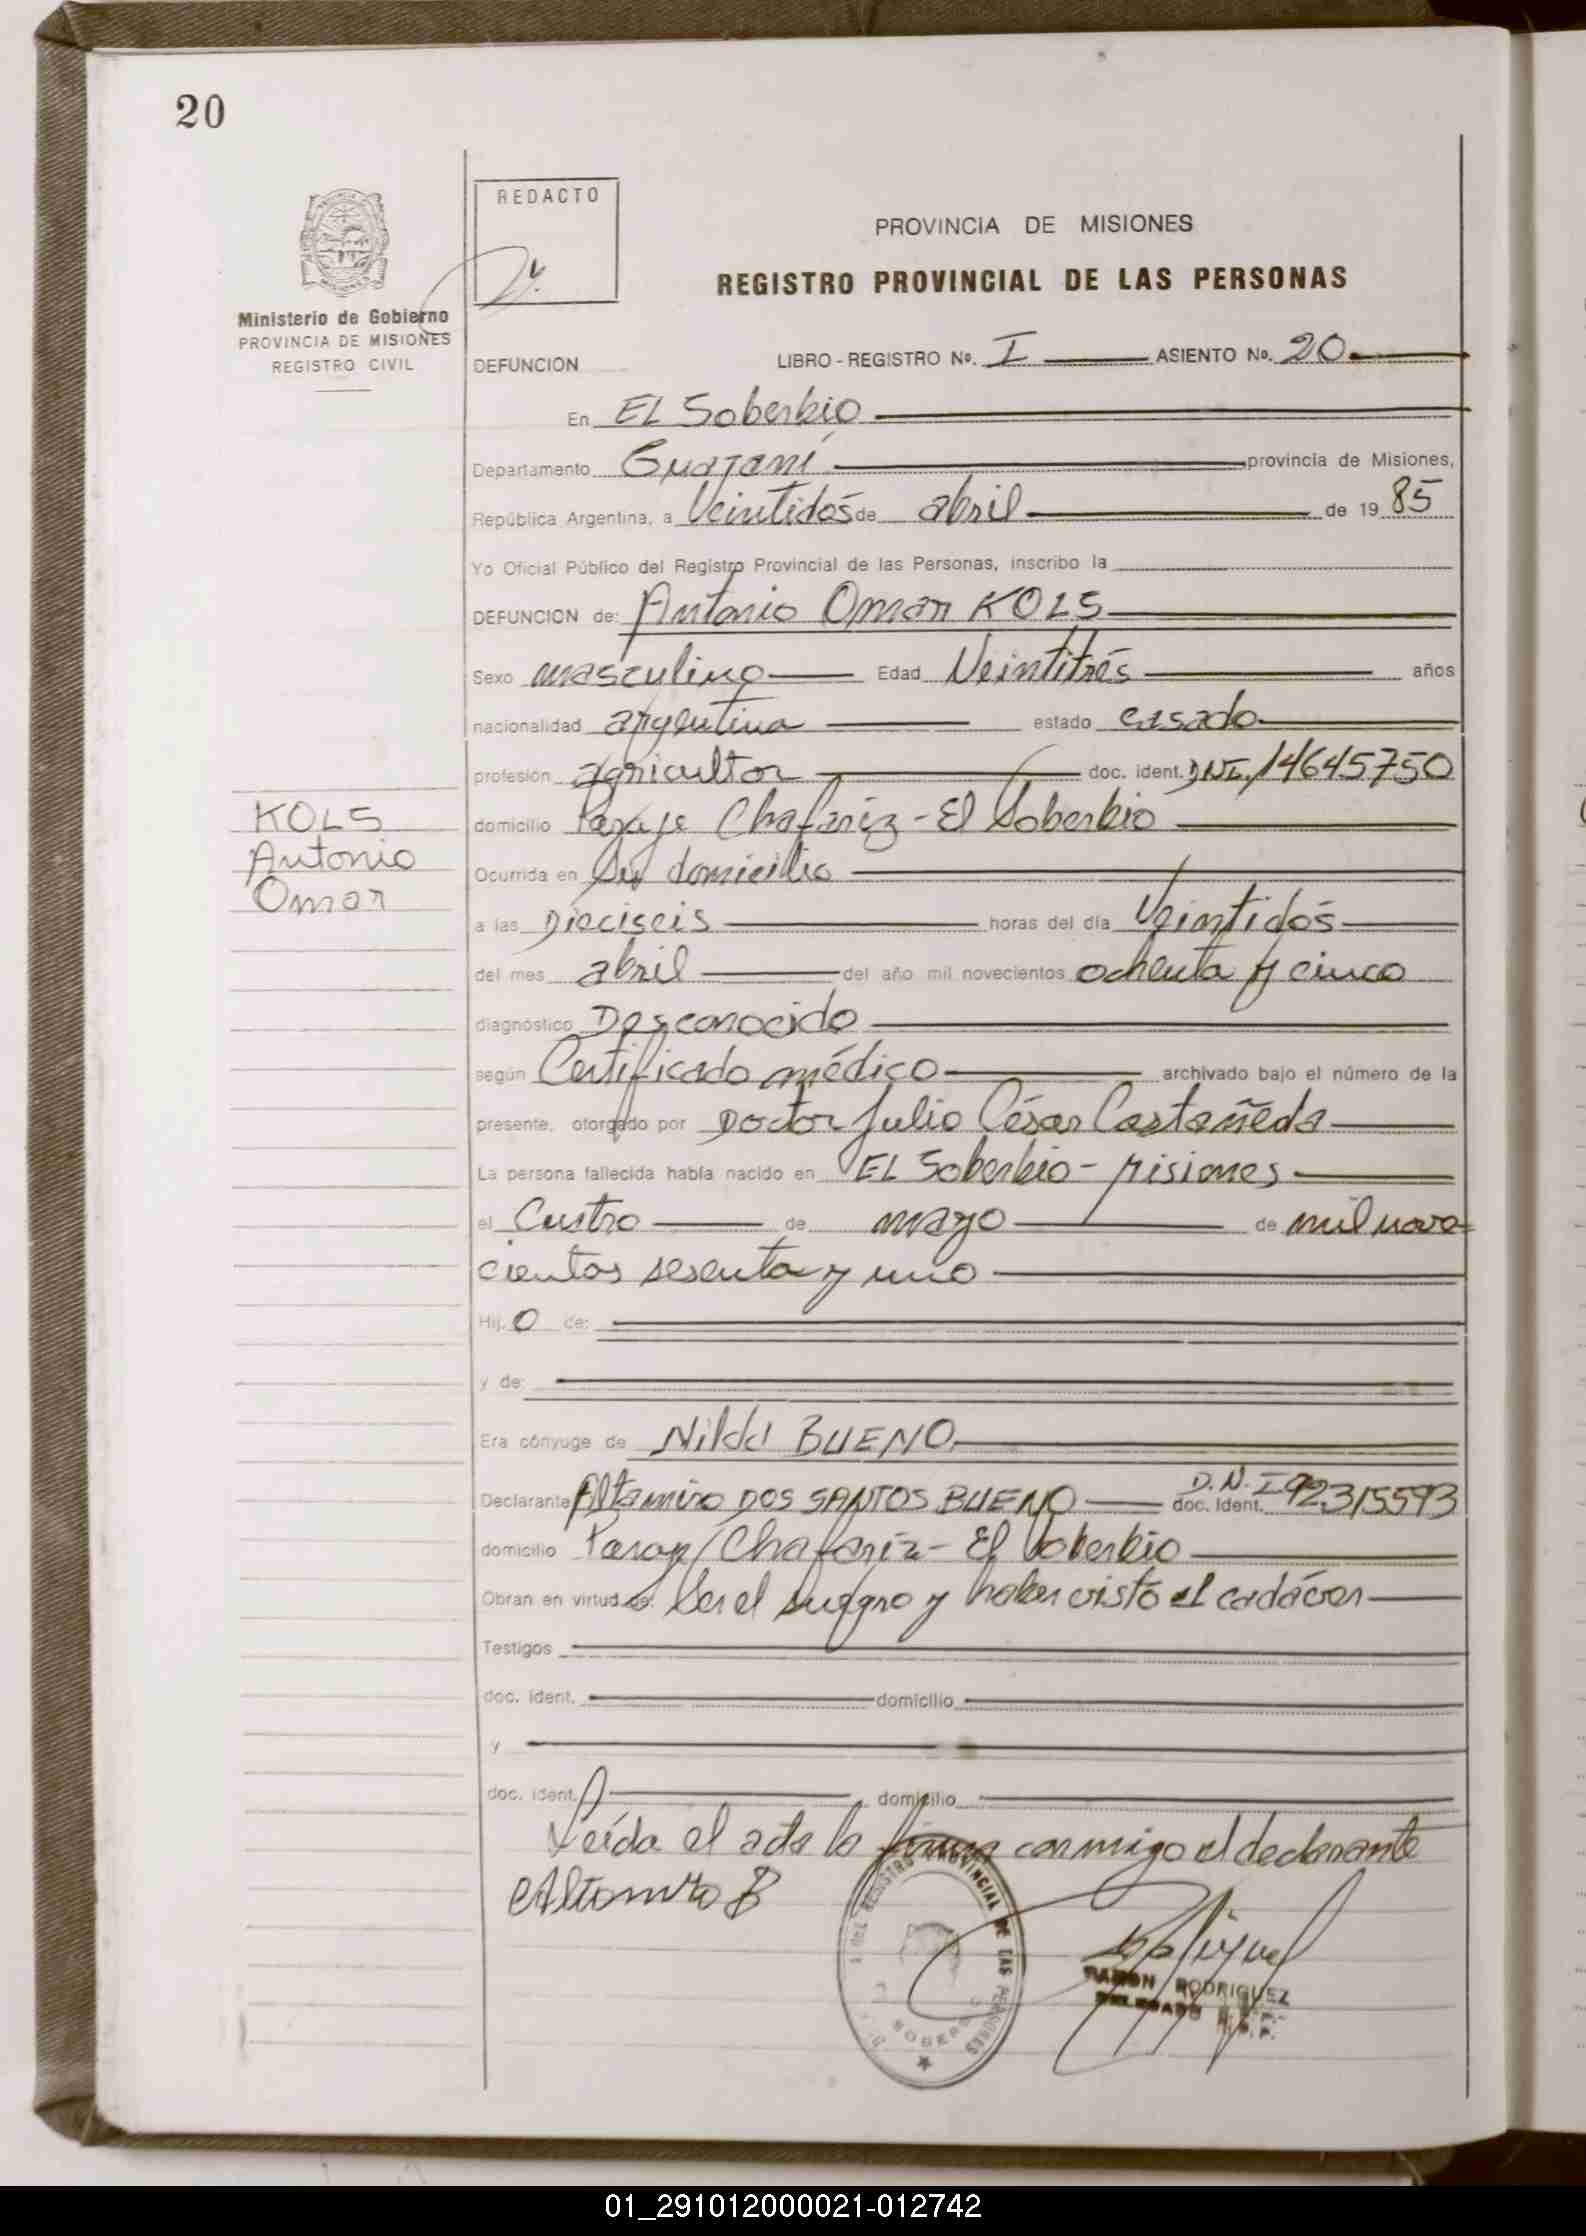 20
REDACTO
PROVINCIA DE MISIONES
REGISTRO PROVINCIAL DE LAS PERSONAS
Ministerio de Gobierno
PROVINCIA DE MISIONES
REGISTRO CIVIL
DEFUNCION LIBRO - REGISTRO No. I ASIENTO No. 20
En EL Soberbio
Departamento Guaraní provincia de Misiones,
República Argentina, a Veintidós de abril de 19 85
Yo Oficial Público del Registro Provincial de las Personas, inscribo la
DEFUNCION de: Antonio Omar KOLS
Sexo masculino Edad Veintitrés años
nacionalidad argentina estado casado
profesión agricultor doc. ident. DNI. 14645750
domicilio Paraje Chafariz - El Soberbio
KOLS
Antonio
Omar
Ocurrida en Su domicilio
a las Dieciseis horas del día Veintidós
del mes abril del año mil novecientos ochenta y cinco
diagnóstico Desconocido
según Certificado médico archivado bajo el número de la
presente, otorgado por Doctor Julio César Castañeda
La persona fallecida había nacido en EL Soberbio - Misiones
el Cuatro de mayo de mil nove-
cientos sesenta y uno
Hij. o de:
y de:
Era cónyuge de Nilda BUENO
Declarante Altamiro DOS SANTOS BUENO doc. Ident. D.N.I 92315593
domicilio Paraje Chafariz - El Soberbio
Obran en virtud de: Ser el suegro y haber visto el cadáver
Testigos
doc. ident. domicilio
y
doc. ident. domicilio
Leída el acta la firma conmigo el declarante
Altamiro B
REGISTRO PROVINCIAL DE LAS PERSONAS
RAMON RODRIGUEZ
DELEGADO
01_291012000021-012742